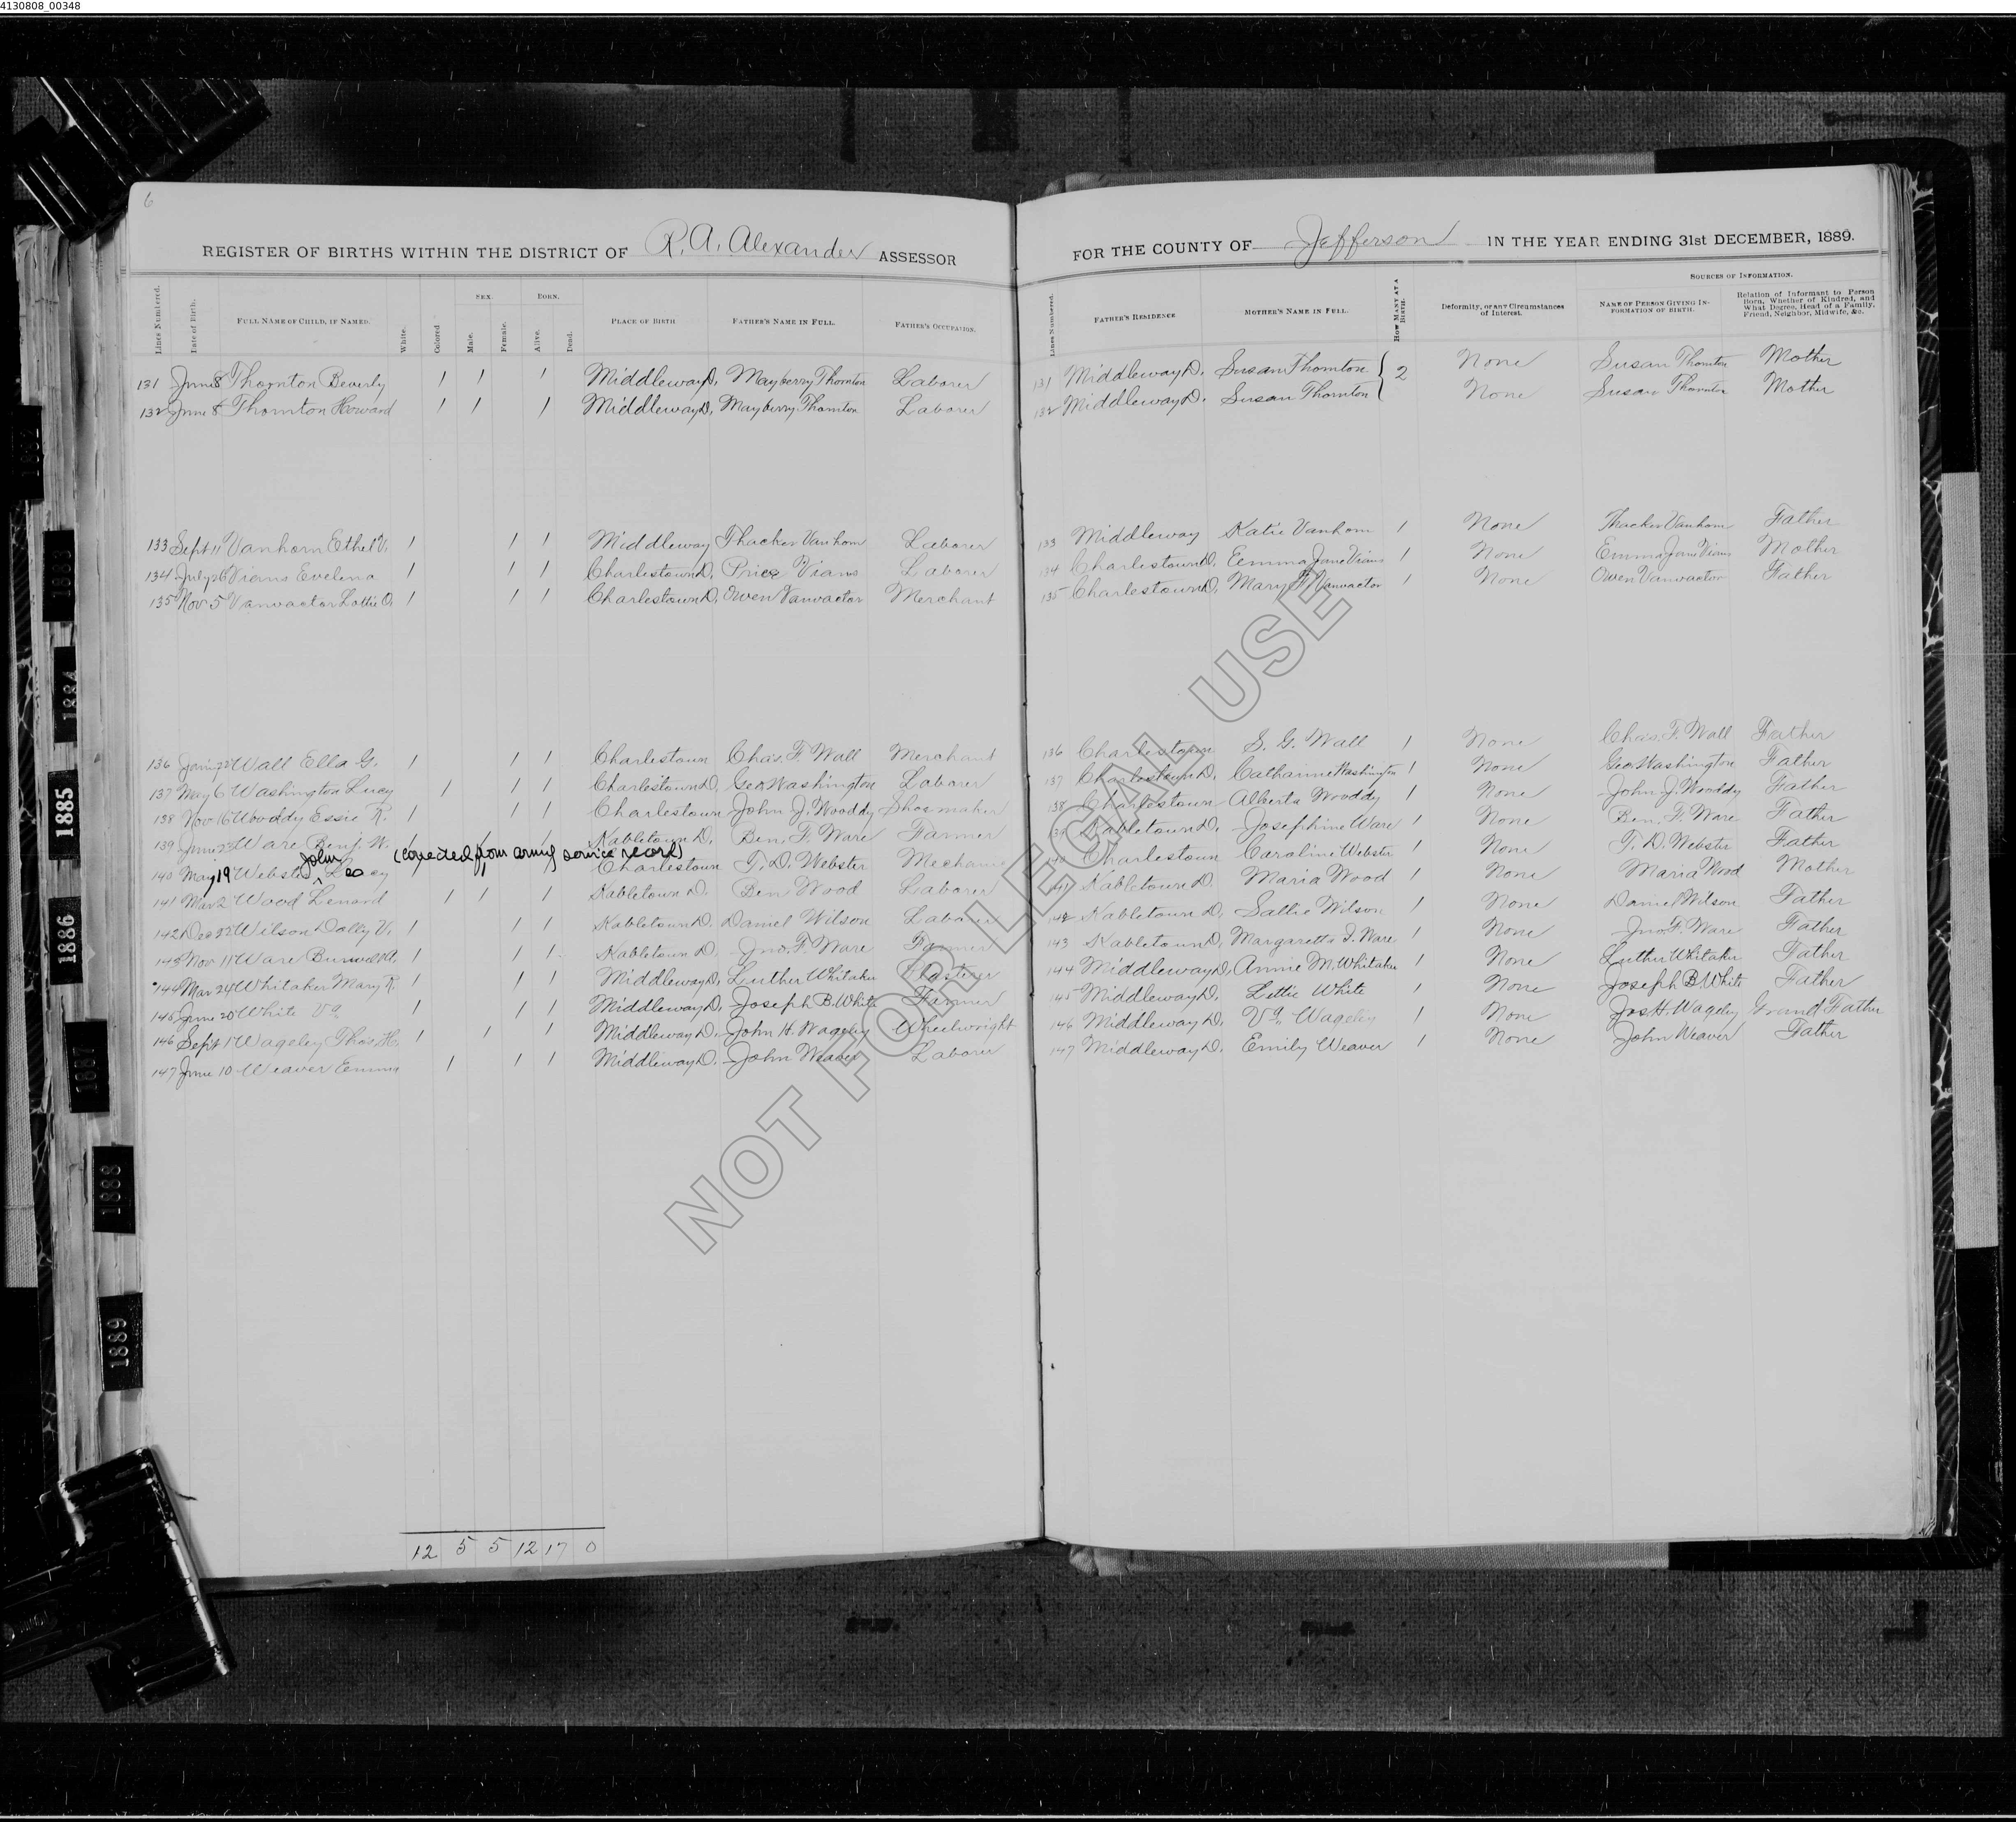 4130808_00348
6
REGISTER OF BIRTHS WITHIN THE DISTRICT OF R. A. Alexander ASSESSOR
FOR THE COUNTY OF Jefferson IN THE YEAR ENDING 31st DECEMBER, 1889.
Lines Numbered. Date of Birth. FULL NAME OF CHILD, IF NAMED. White. Colored SEX. Male. Female. BORN. Alive. Dead. PLACE OF BIRTH FATHER'S NAME IN FULL. FATHER'S OCCUPATION.
Lines Numbered. FATHER'S RESIDENCE MOTHER'S NAME IN FULL. HOW MANY AT A BIRTH. Deformity, or any Circumstances of Interest. SOURCES OF INFORMATION. NAME OF PERSON GIVING INFORMATION OF BIRTH. Relation of Informant to Person Born, Whether of Kindred, and What Degree, Head of a Family, Friend, Neighbor, Midwife, &c.
131 June 8 Thornton Beverly 1 1 1 Middleway D. Mayberry Thornton Laborer 131 Middleway D. Susan Thornton 2 None Susan Thornton Mother
132 June 8 Thornton Howard 1 1 1 Middleway D. Mayberry Thornton Laborer 132 Middleway D. Susan Thornton None Susan Thornton Mother
133 Sept 11 Vanhorn Ethel V. 1 1 1 Middleway Thacker Vanhorn Laborer 133 Middleway Katie Vanhorn 1 None Thacker Vanhorn Father
134 July 26 Vians Evelena 1 1 1 Charlestown D. Price Vians Laborer 134 Charlestown D. Emma Jane Vians 1 None Emma Jane Vians Mother
135 Nov 5 Vanvactor Lottie O. 1 1 1 Charlestown D. Owen Vanvactor Merchant 135 Charlestown D. Mary F. Vanvactor 1 None Owen Vanvactor Father
136 Wall Ella G. 1 1 1 Charlestown Chas. F. Wall Merchant 136 Charlestown S. G. Wall 1 None Chas. F. Wall Father
137 May 6 Washington Lucy 1 1 1 Charlestown D. Geo Washington Laborer 137 Charlestown D. Catharine Washington 1 None Geo Washington Father
138 Nov 16 Wooddy Essie R. 1 1 1 Charlestown John J. Wooddy Shoemaker 138 Charlestown Alberta Wooddy 1 None John J. Wooddy Father
139 June 23 Ware Benj. W. 1 1 1 Kabletown D. Ben. F. Ware Farmer 139 Kabletown D. Josephine Ware 1 None Ben. F. Ware Father
John (corrected from army service record)
140 May 19 Webster Charlestown T. D. Webster Mechanic 140 Charlestown Caroline Webster 1 None T. D. Webster Father
141 Mar 2 Wood Lenard 1 1 1 Kabletown D. Ben. Wood Laborer 141 Kabletown D. Maria Wood 1 None Maria Wood Mother
142 Dec Wilson Dolly V. 1 1 1 Kabletown D. Daniel Wilson Laborer 142 Kabletown D. Sallie Wilson 1 None Daniel Wilson Father
143 Nov 11 Ware 1 1 1 Kabletown D. Jno. F. Ware Farmer 143 Kabletown D. Margaretta I. Ware 1 None Jno. F. Ware Father
144 Mar 24 Whitaker Mary R. 1 1 1 Middleway D. Luther Whitaker Plasterer 144 Middleway D. Annie M. Whitaker 1 None Luther Whitaker Father
145 June 20 White Va 1 1 1 Middleway D. Joseph B. White Farmer 145 Middleway D. Lettie White 1 None Joseph B White Father
146 Sept 1 Wageley Thos. H. 1 1 1 Middleway D. John H. Wageley Wheelwright 146 Middleway D. Va. Wageley 1 None Jos H. Wageley Grand Father
147 June 10 Weaver Emma 1 1 1 Middleway D. John Weaver Laborer 147 Middleway D. Emily Weaver 1 None John Weaver Father
12 5 5 12 17 0
NOT FOR LEGAL USE
1883
1884
1885
1886
1887
1888
1889